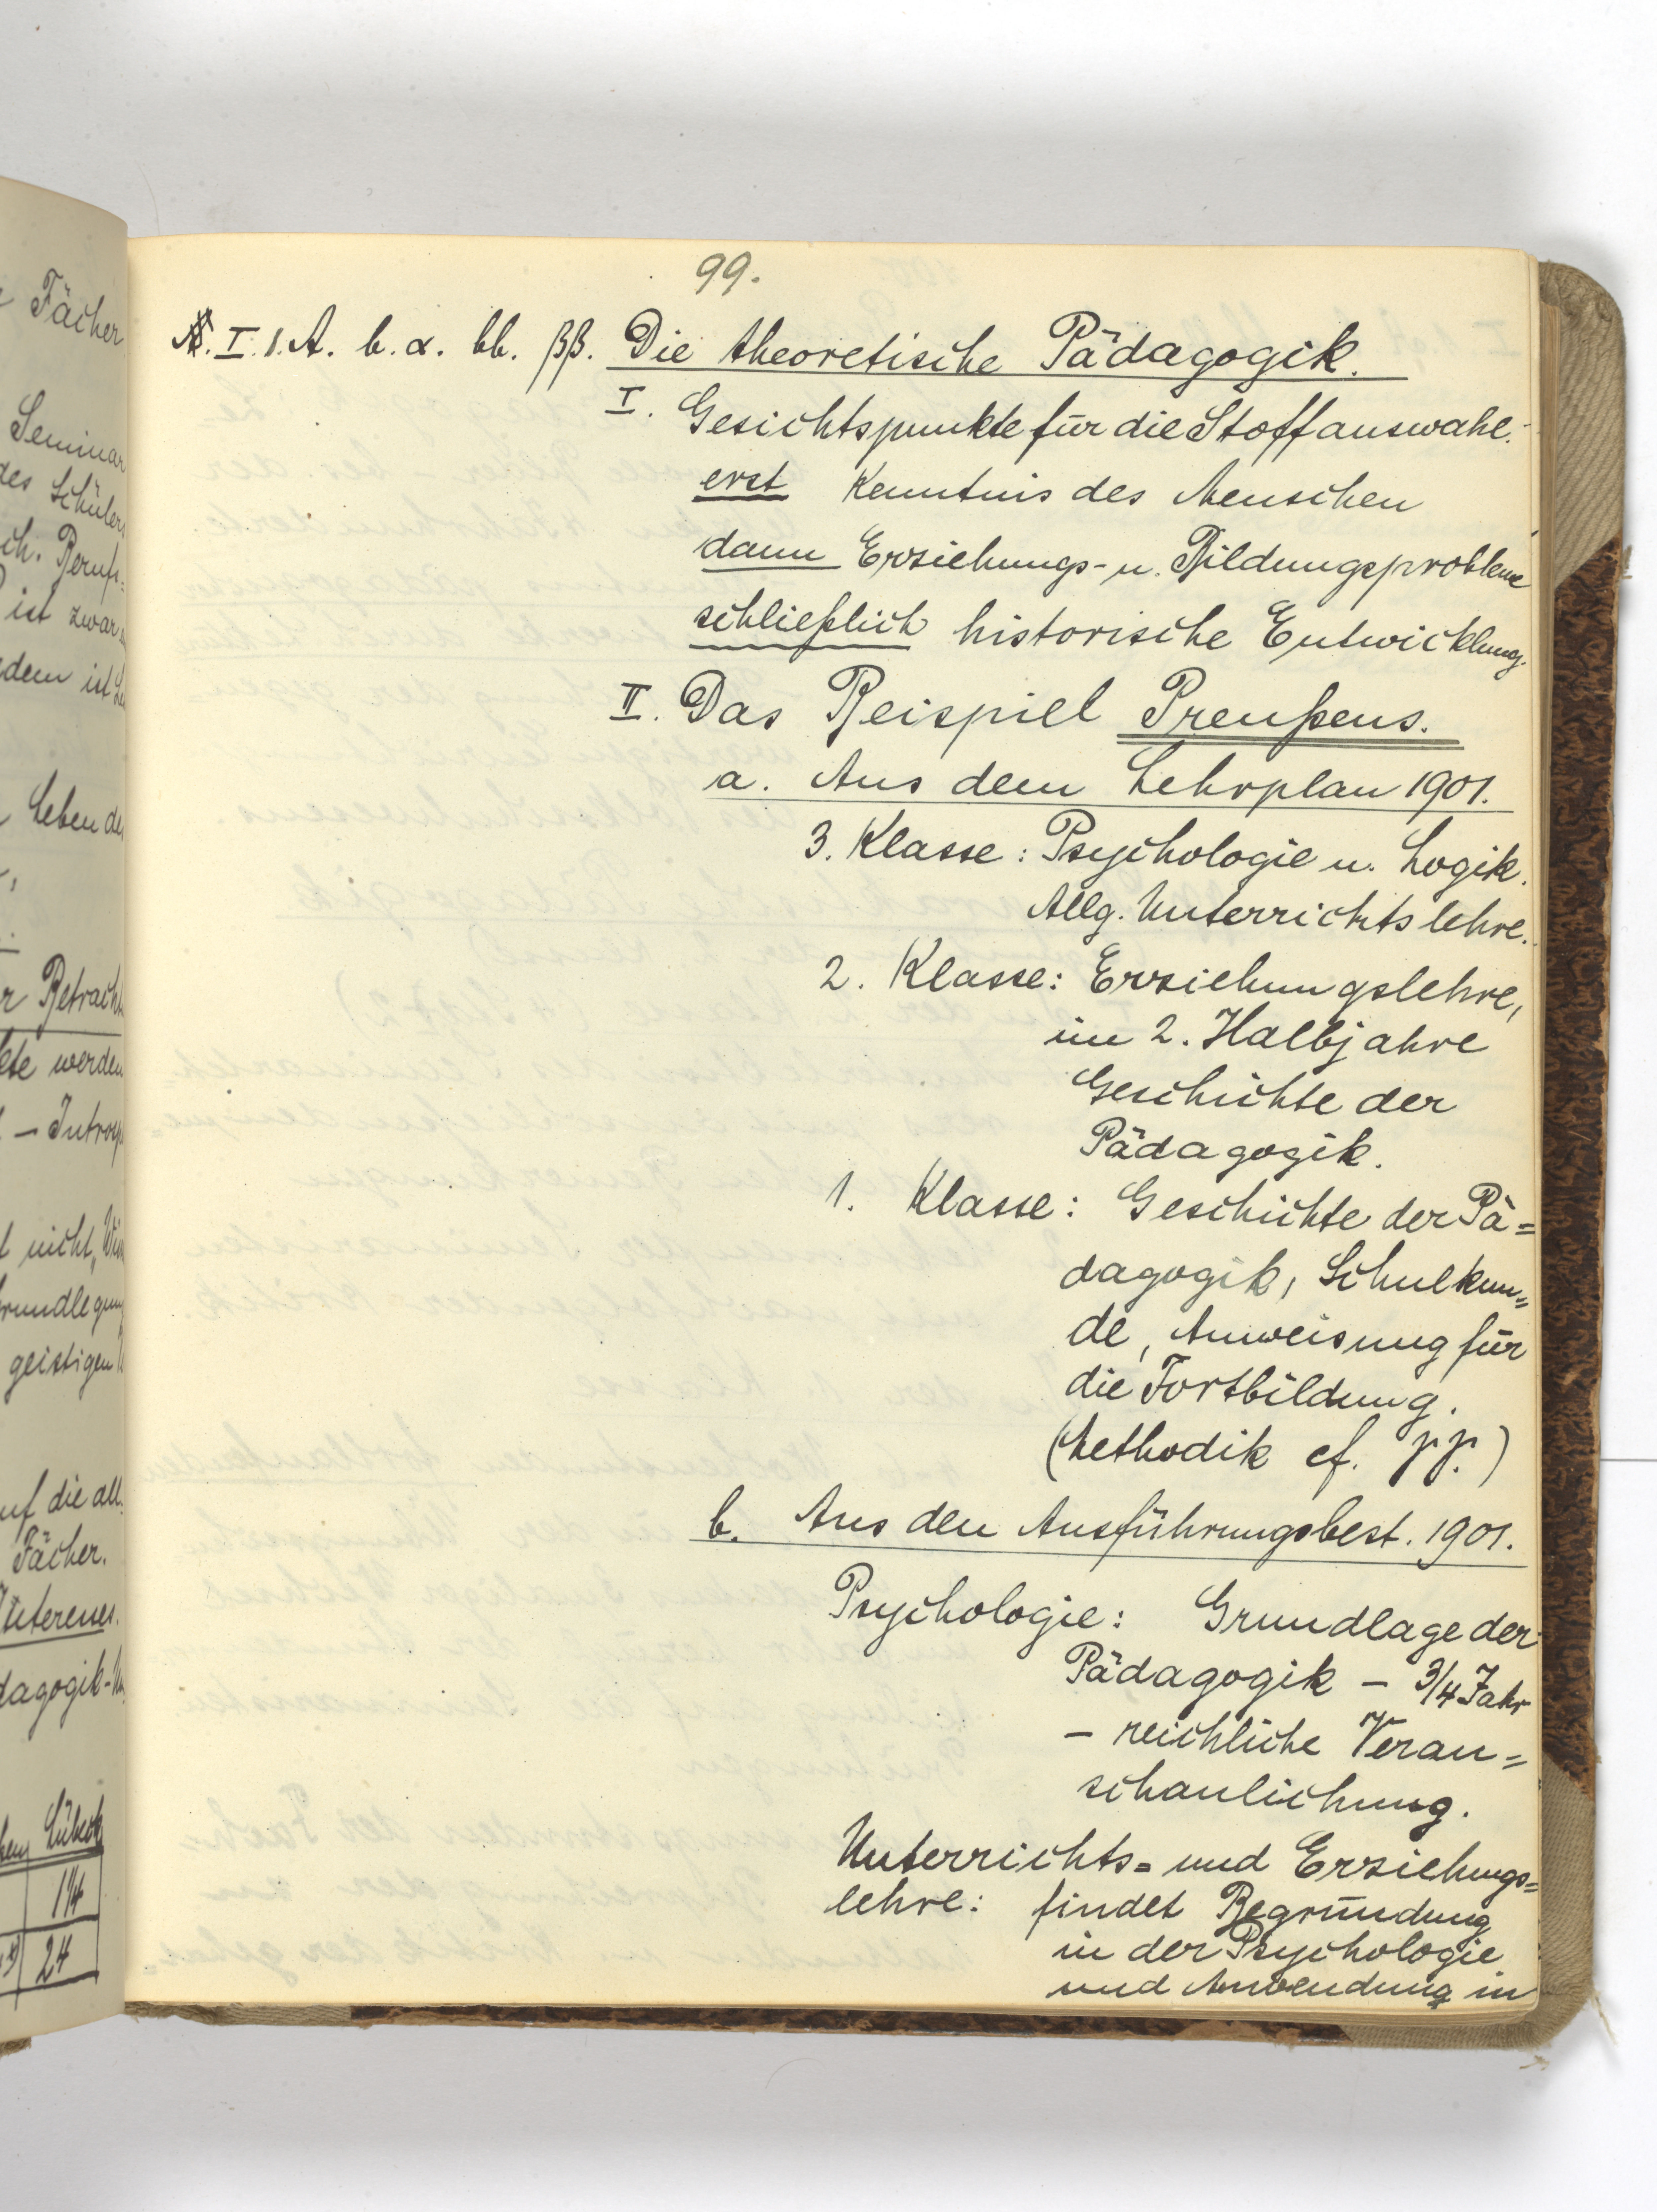 Fächer
Seminar
des Schülers
ch. Berufs-
ist zwar
dem ist
Leben des
Betracht
werden
nicht
Grundlegung
geistigen
auf die all.
Fächer.
Interesses.
dagogik-
Lübeck
1¼
24
99.
I. 1. A. b. α. bb. ββ. Die theoretische Pädagogik.
I. Gesichtspunkte für die Stoffauswahl.
erst Kenntnis des Menschen
dann Erziehungs- u. Bildungsprobleme
schließlich historische Entwicklung.
II. Das Beispiel Preußens.
a. Aus dem Lehrplan 1901.
3. Klasse: Psychologie u. Logik.
Allg. Unterrichtslehre.
2. Klasse: Erziehungslehre,
im 2. Halbjahre
Geschichte der
Pädagogik.
1. Klasse: Geschichte der Pä=
dagogik, Schulkun=
de, Anweisung für
die Fortbildung.
(Methodik cf. γγ.)
b. Aus den Ausführungsbest. 1901.
Psychologie: Grundlage der
Pädagogik – 3/4 Jahr
– reichliche Veran=
schaulichung.
Unterrichts= und Erziehungs=
lehre: findet Begründung
in der Psychologie
und Anwendung in